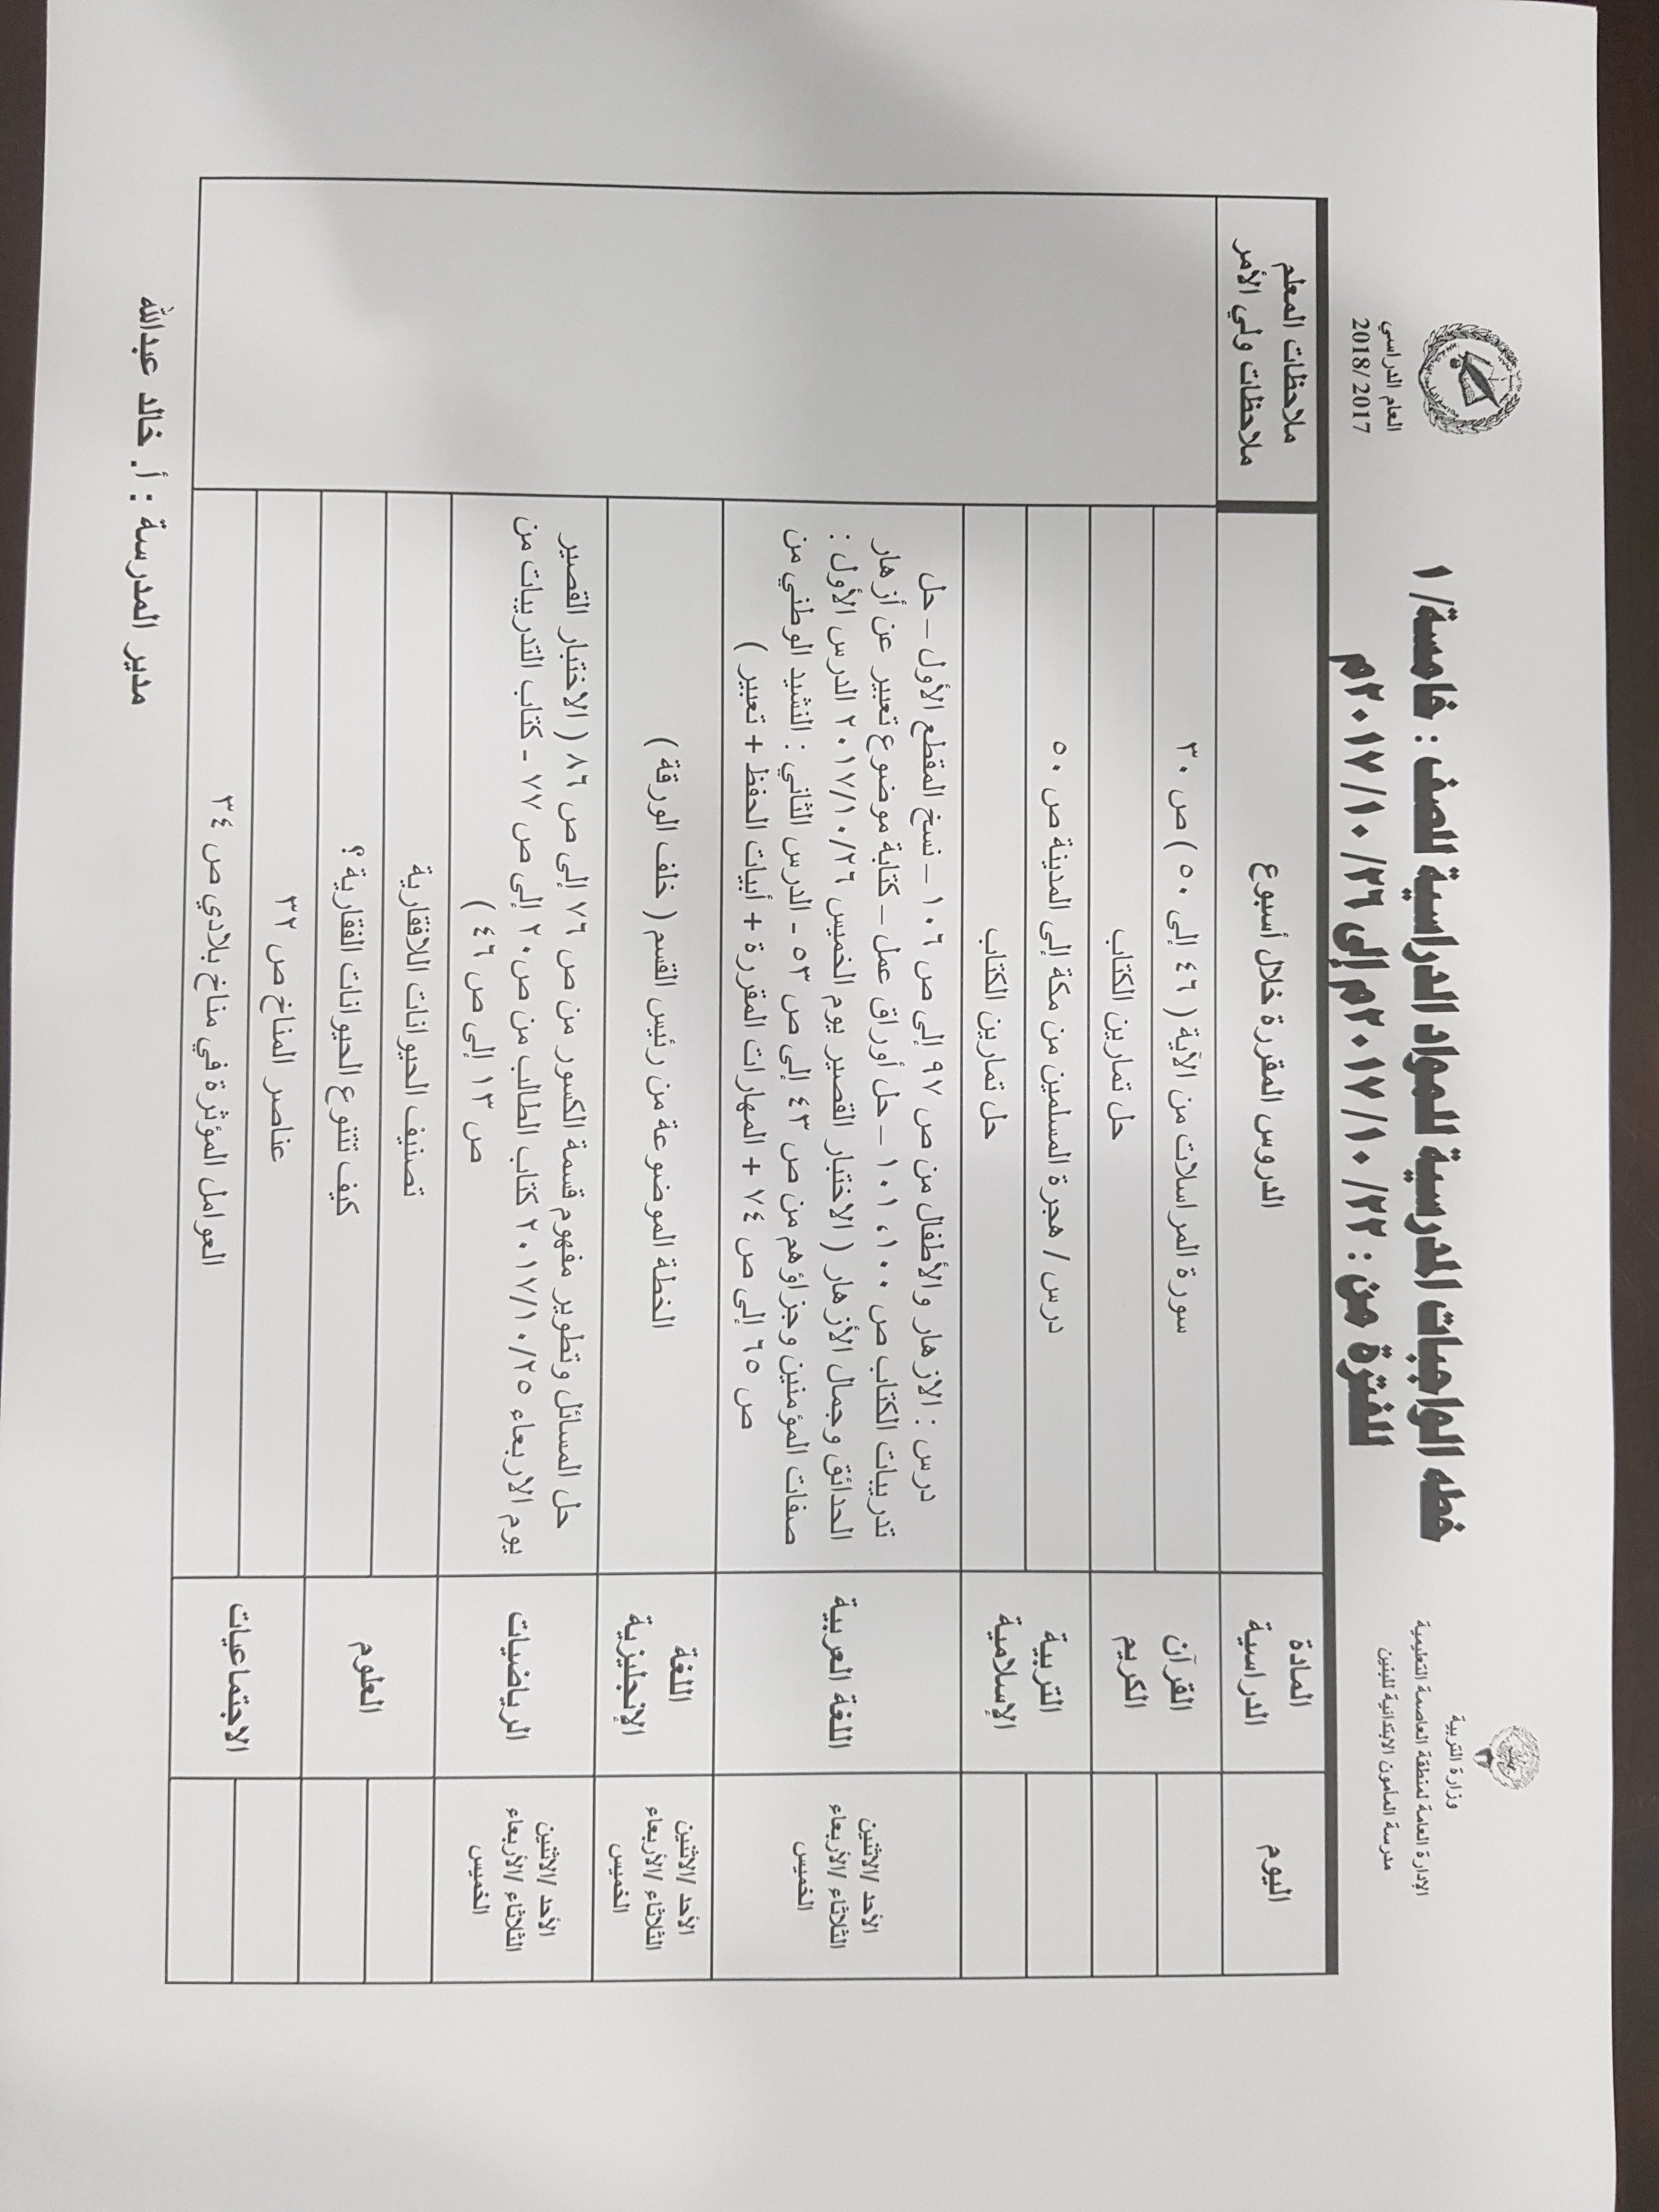 وزارة التربية
الإدارة العامة لمنطقة العاصمة التعليمية
مدرسة المأمون الابتدائية للبنين
خطه الواجبات المدرسية للمواد الدراسية للصف : خامسة/ ١
للفترة من : ٢٢/ ٢٠١٧/١٠م إلى ٢٦/ ٢٠١٧/١٠م
العام الدراسي
2018/ 2017
اليوم
المادة
الدراسية
الدروس المقررة خلال أسبوع
ملاحظات المعلم
ملاحظات ولي الأمر
القرآن
الكريم
سورة المراسلات من الآية ( ٤٦ إلى ٥٠ ) ص ٣٠
حل تمارين الكتاب
التربية
الإسلامية
درس / هجرة المسلمين من مكة إلى المدينة ص ٥٠
حل تمارين الكتاب
الأحد /الاثنين
الثلاثاء /الأربعاء
الخميس
اللغة العربية
درس : الازهار والأطفال من ص ٩٧ إلى ص ١٠٦ – نسخ المقطع الأول – حل
تدريبات الكتاب ص ١٠٠ ، ١٠١ – حل أوراق عمل – كتابة موضوع تعبير عن أزهار
الحدائق وجمال الأزهار ( الاختبار القصير يوم الخميس ٢٠١٧/١٠/٢٦ الدرس الأول :
صفات المؤمنين وجزاؤهم من ص ٤٣ إلى ص ٥٣ - الدرس الثاني : النشيد الوطني من
ص ٦٥ إلى ص ٧٤ + المهارات المقررة + أبيات الحفظ + تعبير )
الأحد /الاثنين
الثلاثاء /الأربعاء
الخميس
اللغة
الإنجليزية
الخطة الموضوعة من رئيس القسم ( خلف الورقة )
الأحد /الاثنين
الثلاثاء /الأربعاء
الخميس
الرياضيات
حل المسائل وتطوير مفهوم قسمة الكسور من ص ٧٦ إلى ص ٨٦ ( الاختبار القصير
يوم الاربعاء ٢٠١٧/١٠/٢٥ كتاب الطالب من ص٢٠ إلى ص ٧٧ - كتاب التدريبات من
ص ١٣ إلى ص ٤٦ )
العلوم
تصنيف الحيوانات اللافقارية
كيف تتنوع الحيوانات الفقارية ؟
الاجتماعيات
عناصر المناخ ص ٣٢
العوامل المؤثرة في مناخ بلادي ص ٣٤
مدير المدرسة : أ. خالد عبدالله